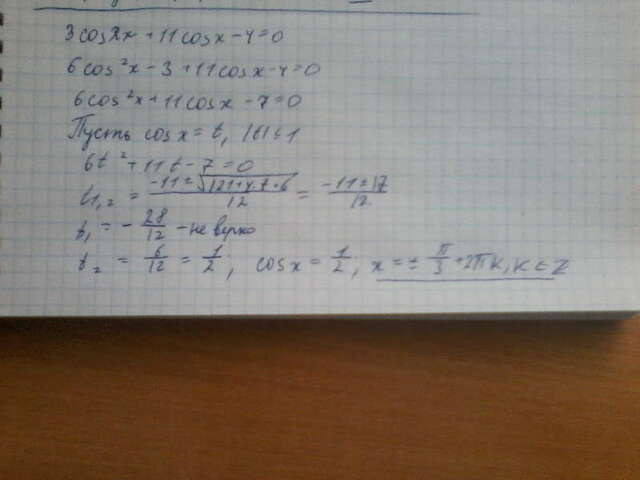 3cos2x + 11cosx - 4 = 0
6cos²x - 3 + 11cosx - 4 = 0
6cos²x + 11cosx - 7 = 0
Пусть cosx = t, |t| ≤ 1
6t² + 11t - 7 = 0
t₁,₂ = (-11 ± √(121+4·7·6))/12 = (-11 ± 17)/12
t₁ = - 28/12 - не верно
t₂ = 6/12 = 1/2; cosx = 1/2; x = ± π/3 + 2πk, k ∈ Z